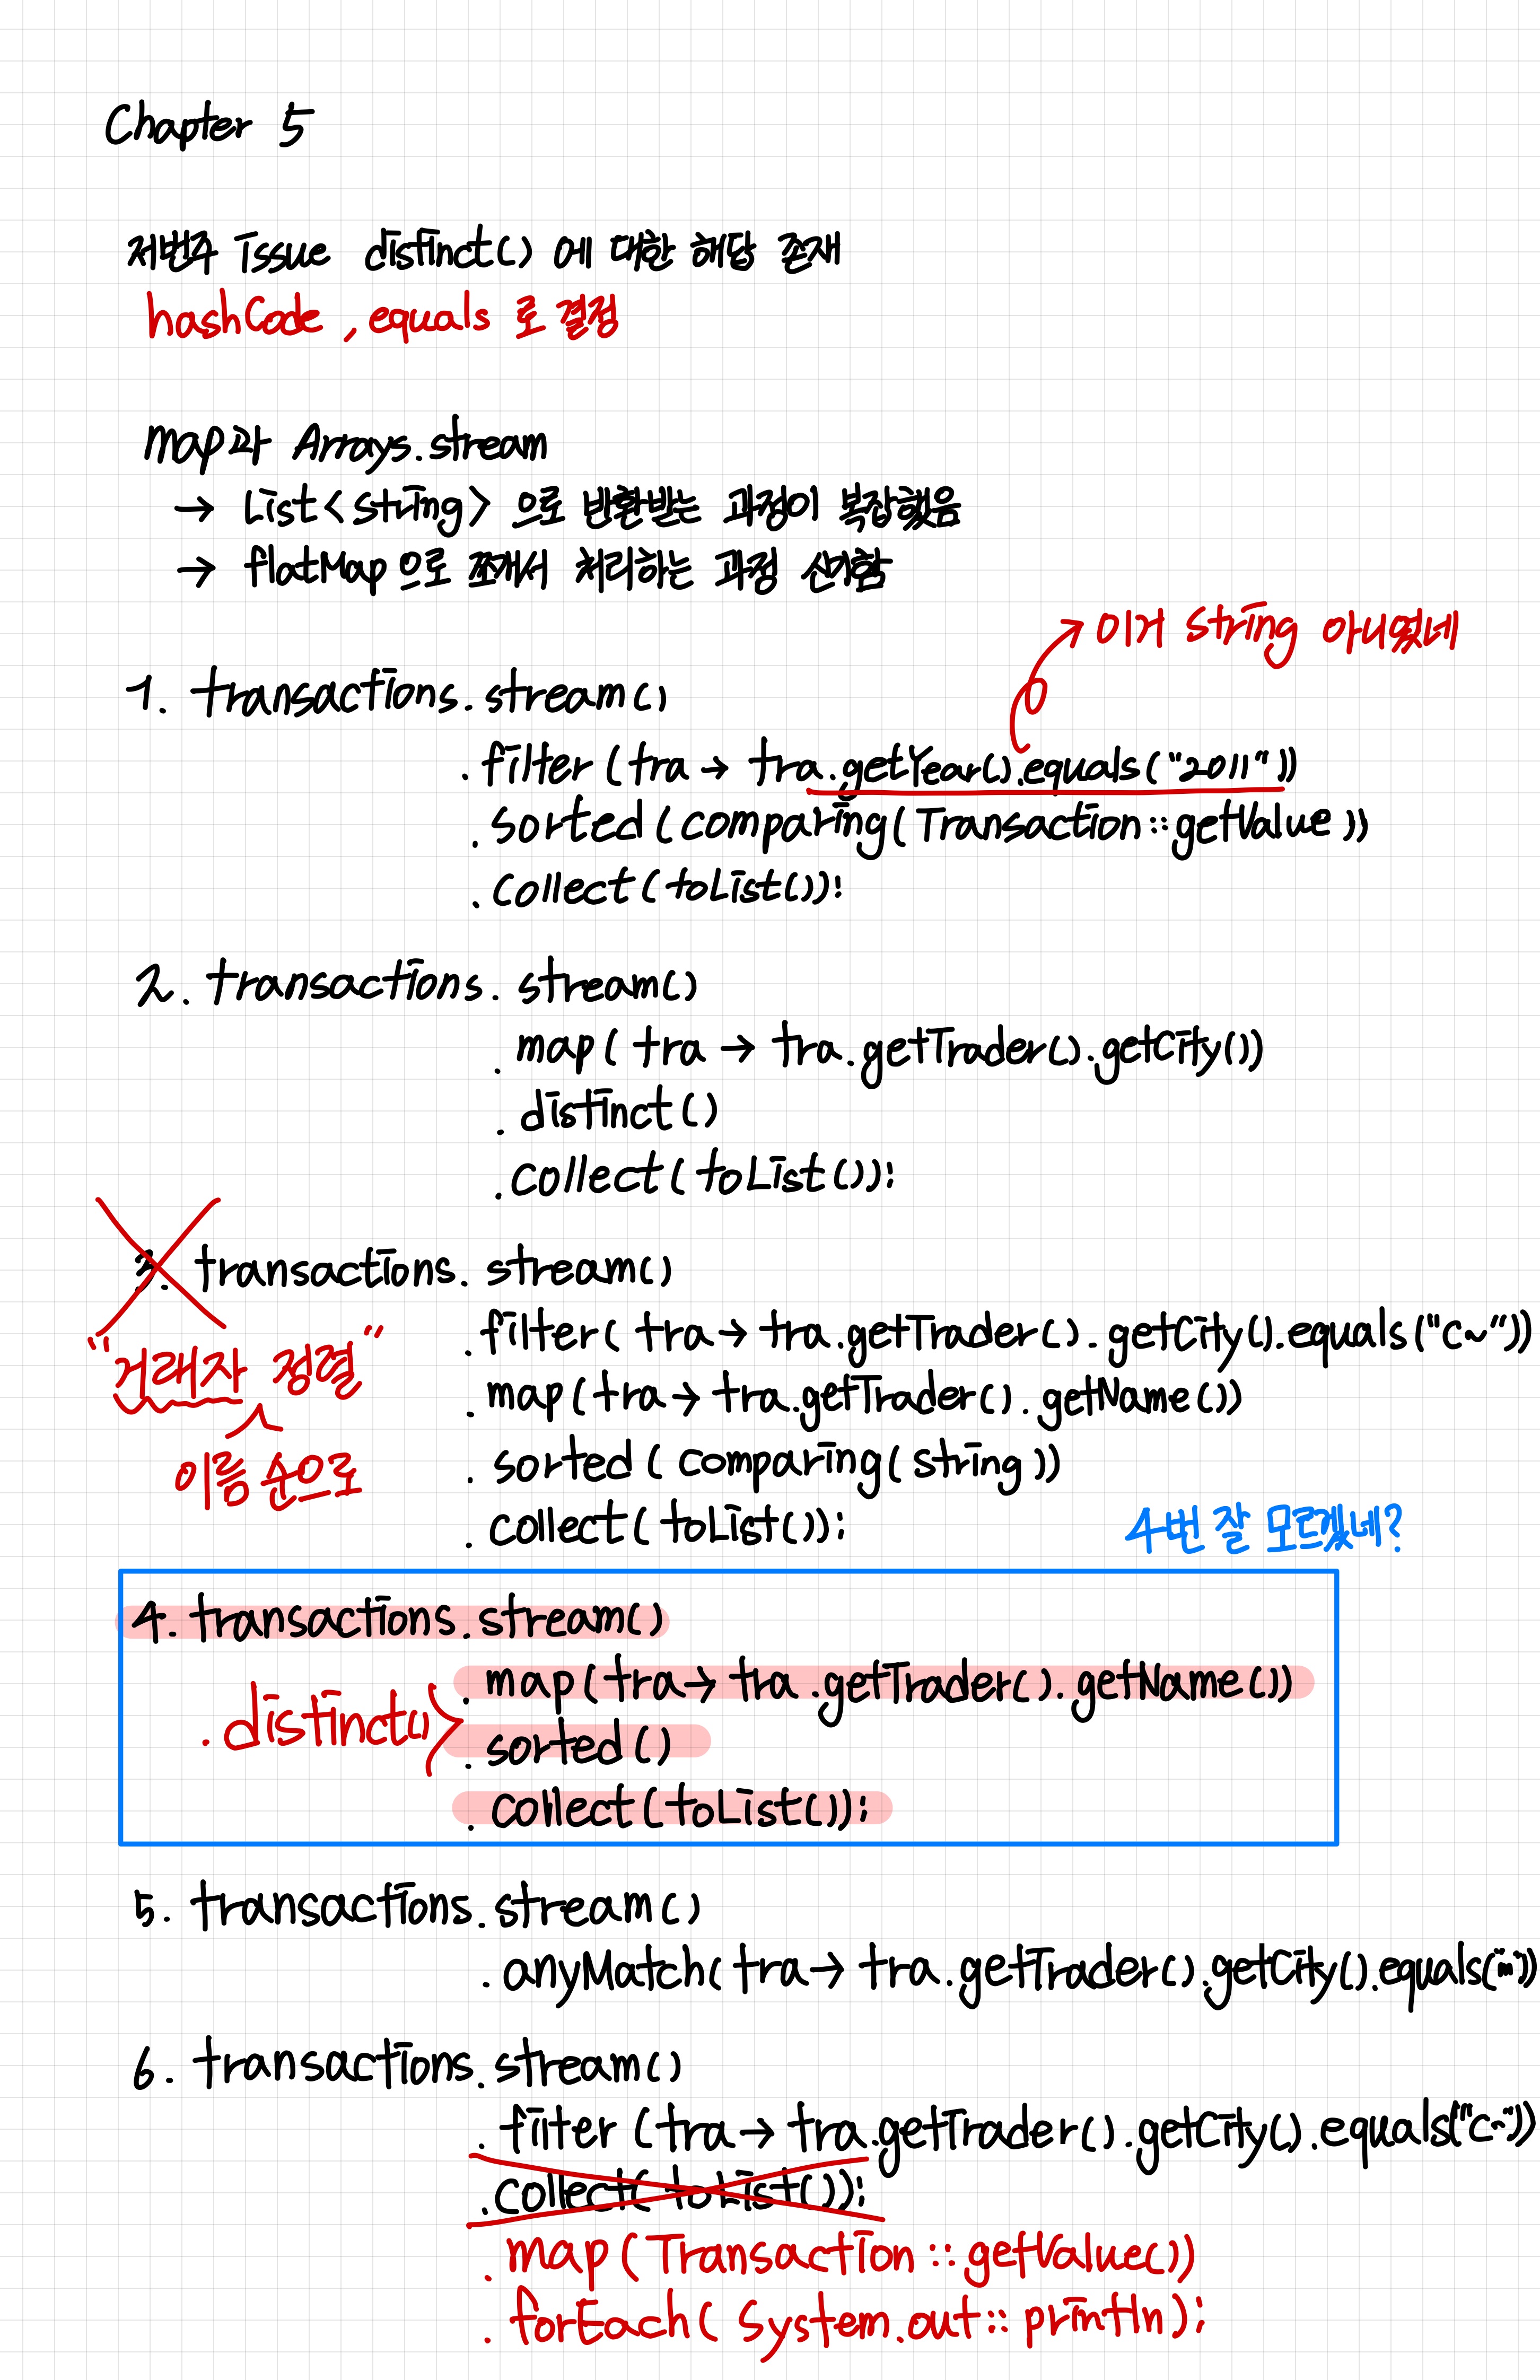 Chapter 5
저번주 issue distinct() 에 대한 해답 존재
hashCode, equals 로 결정
map과 Arrays.stream
→ List<string> 으로 반환받는 과정이 복잡했음
→ flatMap 으로 쪼개서 처리하는 과정 신기함
이거 string 아니였네
1. transactions.stream()
.filter(tra → tra.getYear().equals("2011"))
.sorted(comparing(Transaction::getValue))
.collect(toList());
2. transactions.stream()
.map(tra → tra.getTrader().getCity())
.distinct()
.collect(toList());
3. transactions.stream()
.filter(tra → tra.getTrader().getCity().equals("c~"))
"거래자 정렬"
.map(tra → tra.getTrader().getName())
이름 순으로
.sorted(comparing(string))
.collect(toList());
4번 잘 모르겠네?
4. transactions.stream()
.map(tra → tra.getTrader().getName())
.distinct()
.sorted()
.collect(toList());
5. transactions.stream()
.anyMatch(tra → tra.getTrader().getCity().equals("m"))
6. transactions.stream()
.filter(tra → tra.getTrader().getCity().equals("c~"))
.collect(toList());
.map(Transaction::getValue())
.forEach(System.out::println);